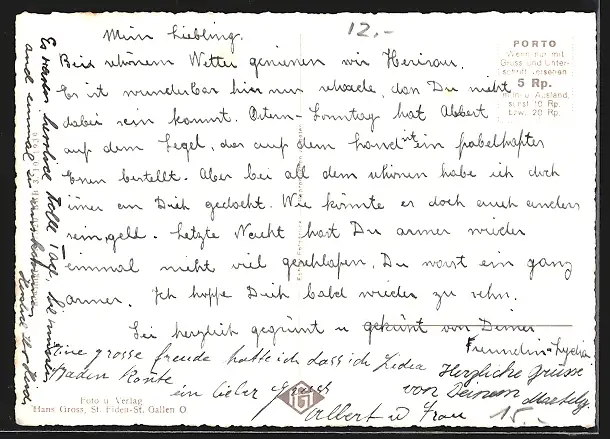 Mein Liebling.
12.-
Bei schönem Wetter geniessen wir Herisau.
Es ist wunderbar hier nur schade, dass Du nicht
dabei sein kannst. Ostern-Sonntag hat Albert
auf dem Segel, das auf dem Land ist ein fabelhaftes
Essen bestellt. Aber bei all dem schönen habe ich doch
immer an Dich gedacht. Wie könnte es doch auch anders
sein, geld. Letzte Nacht hast Du armer wieder
einmal nicht viel geschlafen. Du warst ein ganz
armer. Ich hoffe Dich bald wieder zu sehn.
Sei herzlich gegrüsst u geküsst von Deiner
Freundin Lydia
Eine grosse freude hatte ich dass ich Lidea
Baden konte
ein lieber Gruss
Albert u Frau
Herzliche Grüsse
von Deinem
15.-
Es waren herrliche tolle Tage, die
und einmal
PORTO
Wenn nur mit
Gruss und Unter-
schrift versehen
5 Rp.
Ausland,
sonst 10 Rp.
bzw. 20 Rp.
Foto u Verlag
Hans Gross, St. Fiden-St. Gallen O
G